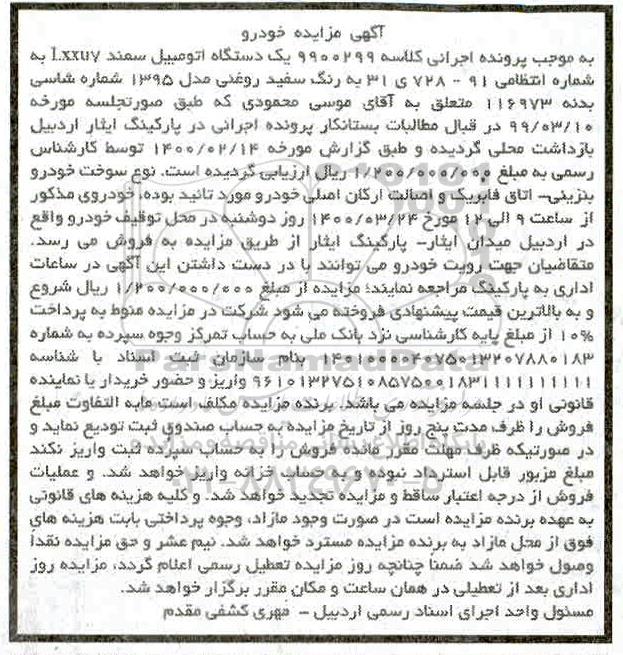 آگهی مزایده خودرو
به موجب پرونده اجرائی کلاسه ۹۹۰۰۲۹۹ یک دستگاه اتومبیل سمند Lxxu۷ به
شماره انتظامی ۹۱ - ۷۲۸ ی ۳۱ به رنگ سفید روغنی مدل ۱۳۹۵ شماره شاسی
بدنه ۱۱۶۹۷۳ متعلق به آقای موسی محمودی که طبق صورتجلسه مورخه
۹۹/۰۳/۱۰ در قبال مطالبات بستانکار پرونده اجرائی در پارکینگ ایثار اردبیل
بازداشت محلی گردیده و طبق گزارش مورخه ۱۴۰۰/۰۲/۱۴ توسط کارشناس
رسمی به مبلغ ۱/۲۰۰/۰۰۰/۰۰۰ ریال ارزیابی گردیده است. نوع سوخت خودرو
بنزینی- اتاق فابریک و اصالت ارکان اصلی خودرو مورد تائید بوده، خودروی مذکور
از ساعت ۹ الی ۱۲ مورخ ۱۴۰۰/۰۳/۲۴ روز دوشنبه در محل توقیف خودرو واقع
در اردبیل میدان ایثار- پارکینگ ایثار از طریق مزایده به فروش می رسد.
متقاضیان جهت رویت خودرو می توانند با در دست داشتن این آگهی در ساعات
اداری به پارکینگ مراجعه نمایند؛ مزایده از مبلغ ۱/۲۰۰/۰۰۰/۰۰۰ ریال شروع
و به بالاترین قیمت پیشنهادی فروخته می شود شرکت در مزایده منوط به پرداخت
۱۰% از مبلغ پایه کارشناسی نزد بانک ملی به حساب تمرکز وجوه سپرده به شماره
۱۴۰۱۰۰۰۰۴۰۷۵۰۱۳۲۰۷۸۸۰۱۸۳ بنام سازمان ثبت اسناد با شناسه
۹۶۱۰۱۳۲۷۵۱۰۸۵۷۵۰۰۱۸۳۱۱۱۱۱۱۱۱۱۱ واریز و حضور خریدار یا نماینده
قانونی او در جلسه مزایده می باشد. برنده مزایده مکلف است مابه التفاوت مبلغ
فروش را ظرف مدت پنج روز از تاریخ مزایده به حساب صندوق ثبت تودیع نماید و
در صورتیکه ظرف مهلت مقرر مانده فروش را به حساب سپرده ثبت واریز نکند
مبلغ مزبور قابل استرداد نبوده و به حساب خزانه واریز خواهد شد. و عملیات
فروش از درجه اعتبار ساقط و مزایده تجدید خواهد شد. و کلیه هزینه های قانونی
به عهده برنده مزایده است در صورت وجود مازاد، وجوه پرداختی بابت هزینه های
فوق از محل مازاد به برنده مزایده مسترد خواهد شد. نیم عشر و حق مزایده نقدا
وصول خواهد شد ضمنا چنانچه روز مزایده تعطیل رسمی اعلام گردد، مزایده روز
اداری بعد از تعطیلی در همان ساعت و مکان مقرر برگزار خواهد شد.
مسئول واحد اجرای اسناد رسمی اردبیل - فهری کشفی مقدم
ParsNamadData
۰۲۱-۸۸۳۴۹۶۷۰-۵